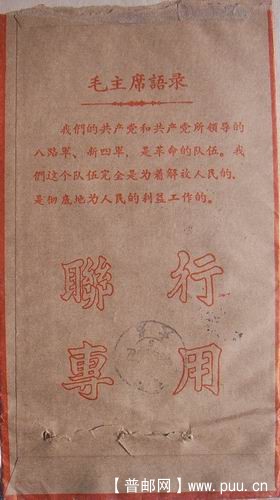 毛主席語录
我們的共产党和共产党所领导的
八路軍、新四軍，是革命的队伍。我
們这个队伍完全是为着解放人民的，
是彻底地为人民的利益工作的。
聯行
專用
【普邮网】www.puu.cn